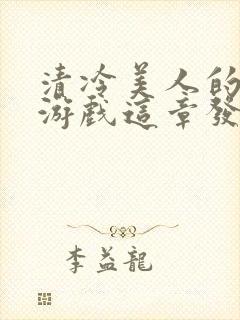 清冷美人的
游戲這章發
李益龍